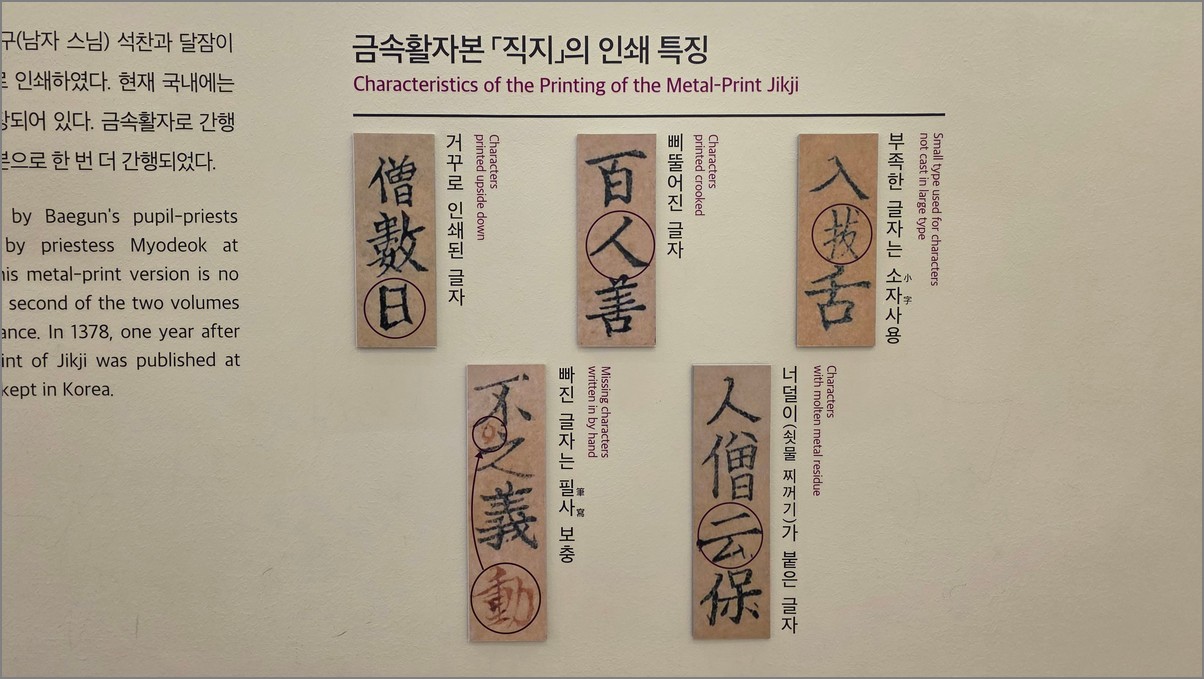 구(남자 스님) 석찬과 달잠이
인쇄하였다. 현재 국내에는
되어 있다. 금속활자로 간행
본으로 한 번 더 간행되었다.
by Baegun's pupil-priests
by priestess Myodeok at
his metal-print version is no
second of the two volumes
ance. In 1378, one year after
int of Jikji was published at
kept in Korea.
금속활자본 「직지」의 인쇄 특징
Characteristics of the Printing of the Metal-Print Jikji
僧數日
거꾸로 인쇄된 글자
Characters
printed upside down
百人善
삐뚤어진 글자
Characters
printed crooked
入拔舌
부족한 글자는 소자사용
小字
Small type used for characters
not cast in large type
不之義動
빠진 글자는 필사 보충
筆寫
Missing characters
written in by hand
人僧云保
너덜이(쇳물 찌꺼기)가 붙은 글자
Characters
with molten metal residue